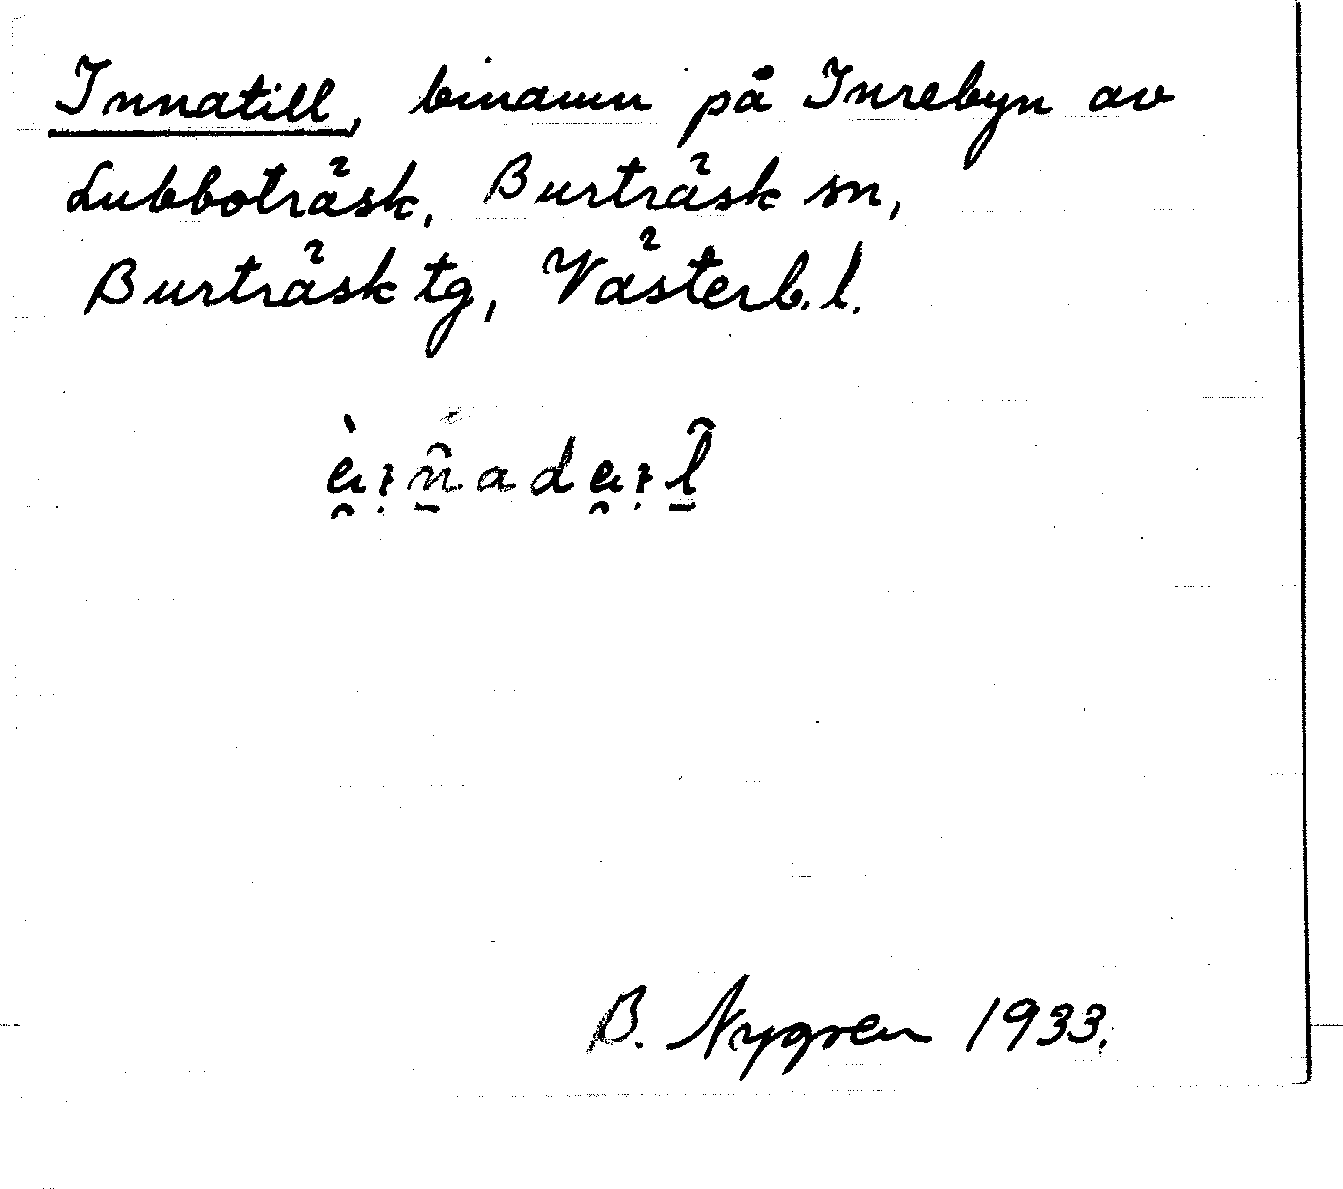 Innatill, binamn på Inrebyn av
Lubboträsk, Burträsk sn,
Burträsk tg, Västerb. l.
B. Nygren 1933.